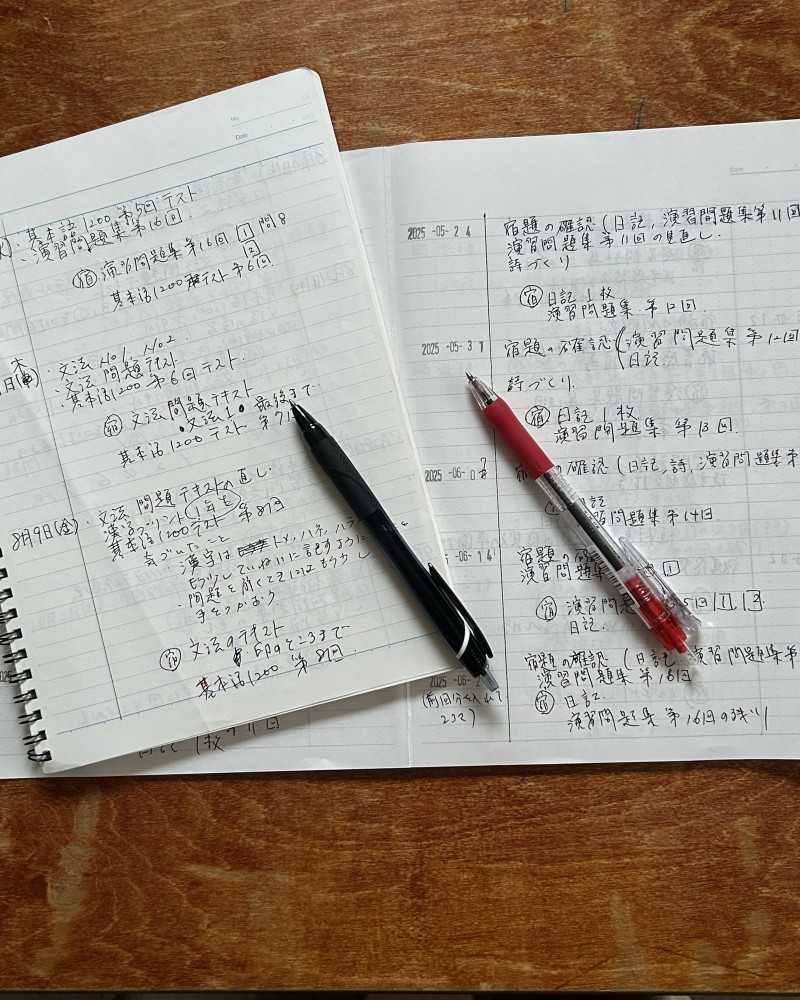 No.
Date
・基本話1200 第5回テスト
・演習問題集第16回
宿 演習問題集第16回 1 問8
2
基本話1200 テスト 第6回
木
・文法 No1, No2
・文法問題テキスト
・基本話1200 第6回テスト.
宿 文法問題テキスト
・文法1・最後まで
基本話1200 テスト 第7
8月9日(金)・文法問題テキストの直し.
漢字プリント 1年を
基本話1200テスト 第8回
気づいたこと
・漢字は トメ, ハネ,
もう少していねいに記すように
・問題を解くときには もう少し
宿 文法のテキスト
・P.
基本話1200 第8回.
Date
2025-05-24
宿題の確認(日記, 演習問題集第11回
演習問題集 第11回の見直し.
詩づくり
宿 日記1枚
演習問題集 第12回.
2025-05-31
宿題の確認(演習問題集 第12回
日記.
詩づくり.
宿 日記1枚
演習問題集 第13回.
2025-06-0
の確認(日記, 詩, 演習問題集第
日記
問題集第14回.
-14
宿題の確
演習問題集 1
宿 演習問 5回 1, 3
日記.
2025-06-2
宿題の確認(日記, 演習問題集第
演習問題集 第16回
(前回分
宿 日記.
演習問題集 第16回の残り